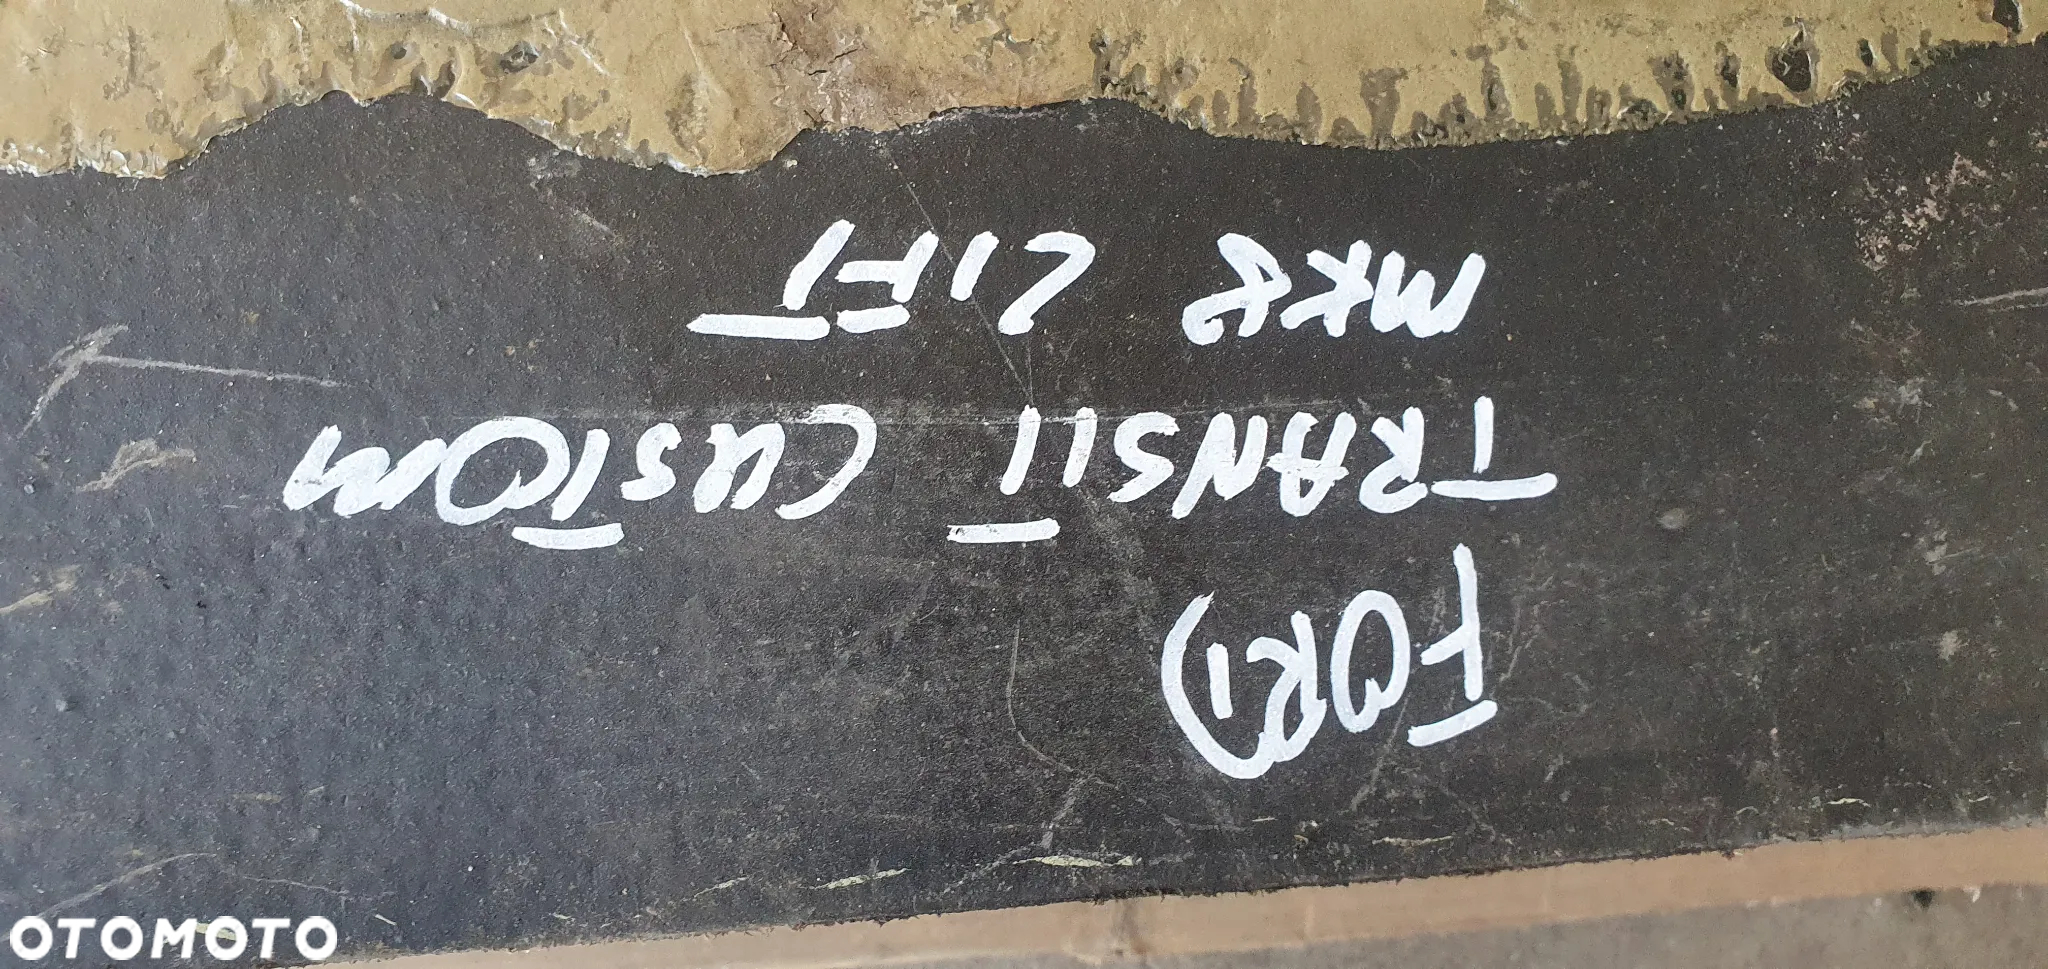 FORD
TRANSIT CUSTOM
MK8 LIFT
OTOMOTO